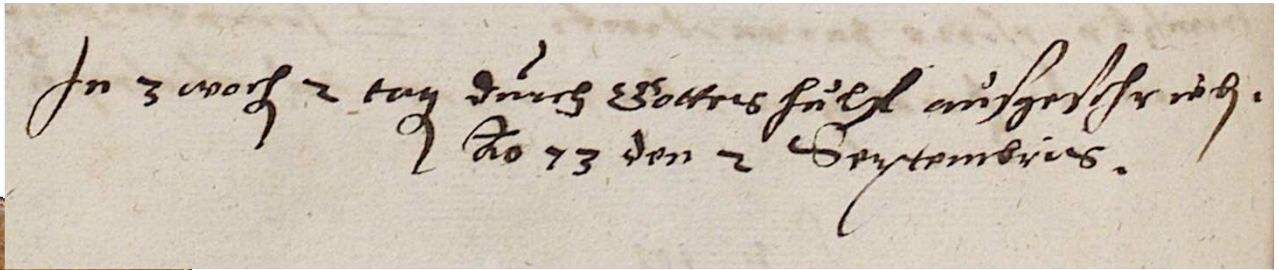 In 3 woch 2 tag durch Gottes hülf ausgeschrieb.
Ao 73 den 2 Septembris.